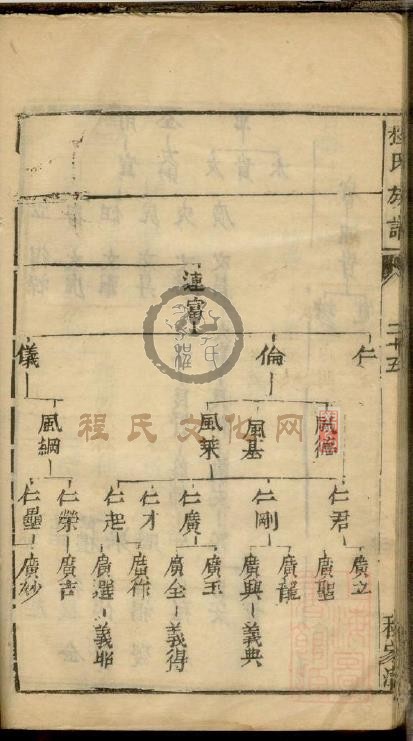 程氏族譜
二十五
漣富
仁
倫
儀
風德
風基
風萊
風綱
仁君
仁剛
仁廣
仁才
仁起
仁榮
仁壘
廣立
廣聖
廣龍
廣興
義典
廣玉
廣全
義得
廣作
廣選
義昭
廣吉
廣妙
程氏文化网